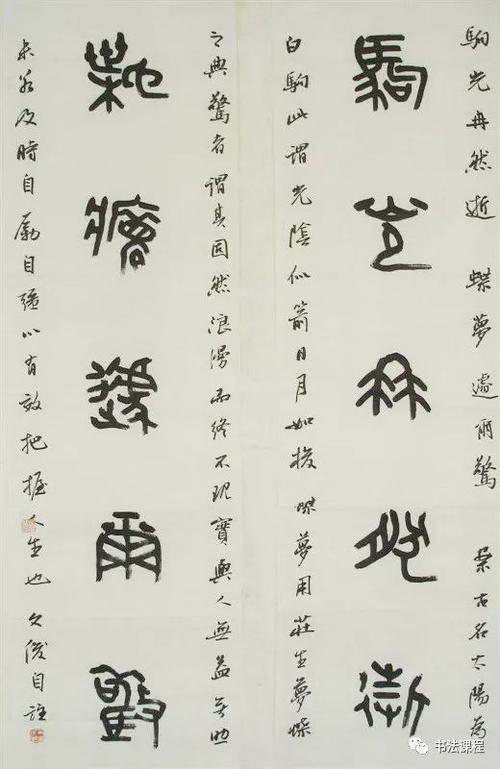 駒光冉然逝
蝶夢遽爾驚
駒光冉然逝 蝶夢遽爾驚 案古名太陽為
白駒此謂光陰似箭日月如梭蝶夢用莊生夢蝶
之典驚者謂其固然浪漫而終不現實與人無益無助
未若及時自勵自強以有效把握人生也 文俊自註
书法课程